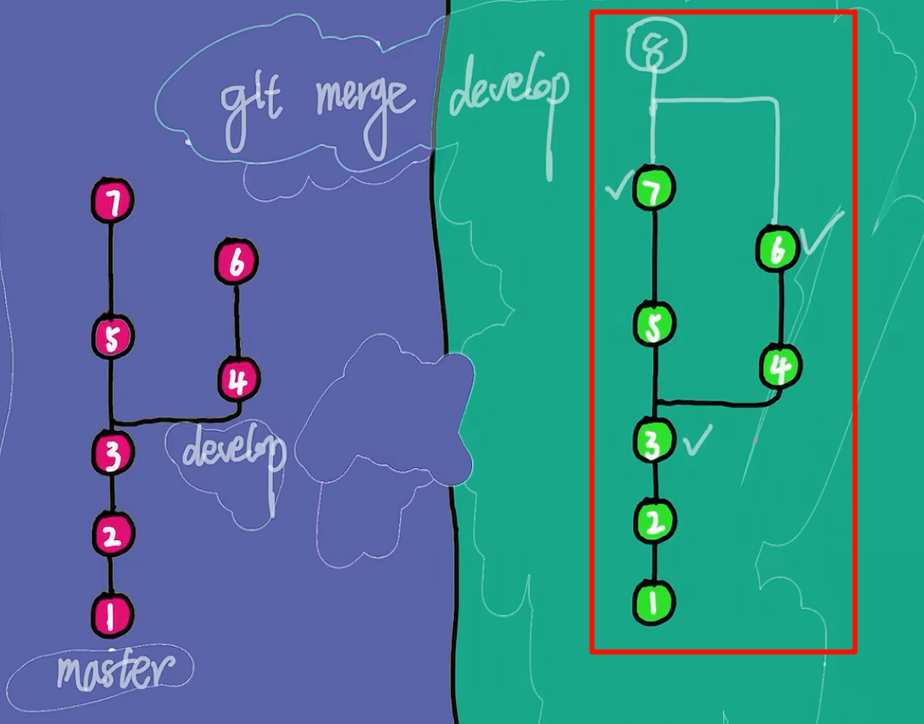 git merge develop
7
6
5
4
develop
3
2
1
master
8
7
6
5
4
3
2
1